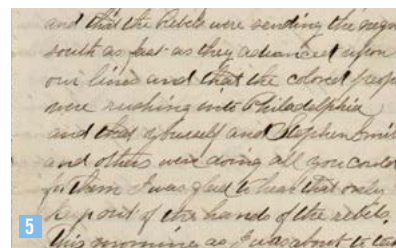 and that the Rebels were sending the negro
south as fast as they advanced upon
our lines and that the colored peop
were rushing into Philadelphia
and that yourself and Stephen Smi
and others were doing all you could
for them I was glad to hear that only
keep out of the hands of the rebels.
This morning as I was about to ta
5